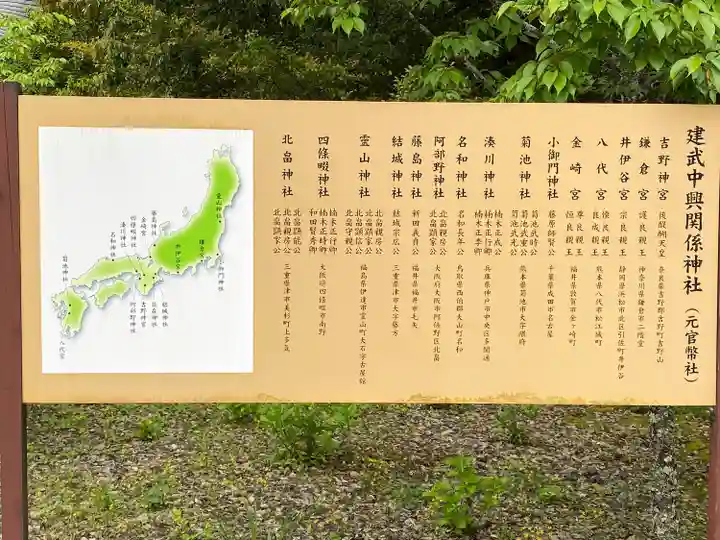 建武中興関係神社（元官幣社）
吉野神宮 後醍醐天皇 奈良県吉野郡吉野町吉野山
鎌倉宮 護良親王 神奈川県鎌倉市二階堂
井伊谷宮 宗良親王 静岡県浜松市北区引佐町井伊谷
八代宮 懐良親王 良成親王 熊本県八代市松江城町
金崎宮 尊良親王 恒良親王 福井県敦賀市金ヶ崎町
小御門神社 藤原師賢公 千葉県成田市名古屋
菊池神社 菊池武時公 菊池武重公 菊池武光公 熊本県菊池市大字隈府
湊川神社 楠木正成公 楠木正行卿 楠木正季卿 兵庫県神戸市中央区多聞通
名和神社 名和長年公 鳥取県西伯郡大山町名和
阿部野神社 北畠親房公 北畠顕家公 大阪府大阪市阿倍野区北畠
藤島神社 新田義貞公 福井県福井市毛矢
結城神社 結城宗広公 三重県津市大字藤方
霊山神社 北畠親房公 北畠顕家公 北畠顕信公 北畠守親公 福島県伊達市霊山町大石字古屋舘
四條畷神社 楠木正行卿 楠木正時卿 和田賢秀卿 大阪府四條畷市南野
北畠神社 北畠親房公 北畠顕家公 北畠顕能公 三重県津市美杉町上多気
霊山神社
鎌倉宮
小御門神社
井伊谷宮
藤島神社
金崎宮
四條畷神社
湊川神社
名和神社
菊池神社
八代宮
結城神社
北畠神社
吉野神宮
阿部野神社